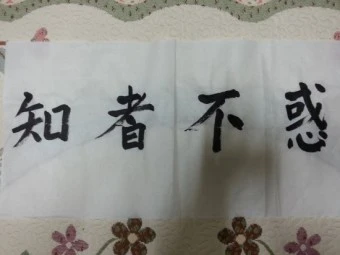 知者不惑